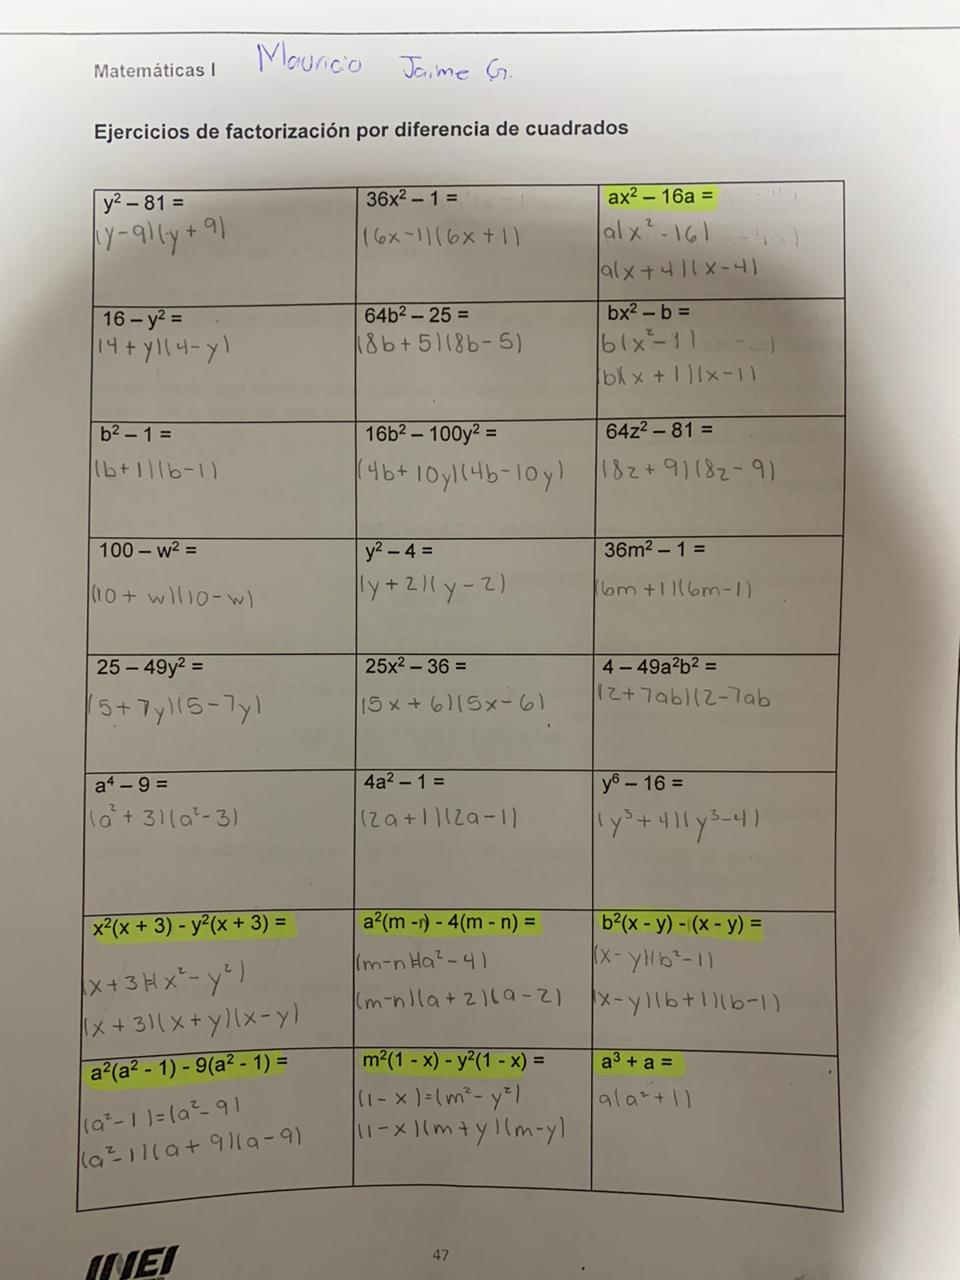 Matemáticas I Mauricio Jaime G.
Ejercicios de factorización por diferencia de cuadrados
y² – 81 =
(y-9)(y+9)
36x² – 1 =
(6x-1)(6x+1)
ax² – 16a =
a(x²-16)
a(x+4)(x-4)
16 – y² =
(4+y)(4-y)
64b² – 25 =
(8b+5)(8b-5)
bx² – b =
b(x²-1)
b(x+1)(x-1)
b² – 1 =
(b+1)(b-1)
16b² – 100y² =
(4b+10y)(4b-10y)
64z² – 81 =
(8z+9)(8z-9)
100 – w² =
(10+w)(10-w)
y² – 4 =
(y+2)(y-2)
36m² – 1 =
(6m+1)(6m-1)
25 – 49y² =
(5+7y)(5-7y)
25x² – 36 =
(5x+6)(5x-6)
4 – 49a²b² =
(2+7ab)(2-7ab
a⁴ – 9 =
(a²+3)(a²-3)
4a² – 1 =
(2a+1)(2a-1)
y⁶ – 16 =
(y³+4)(y³-4)
x²(x + 3) - y²(x + 3) =
(x+3)(x²-y²)
(x+3)(x+y)(x-y)
a²(m - n) - 4(m - n) =
(m-n)(a²-4)
(m-n)(a+2)(a-2)
b²(x - y) - (x - y) =
(x-y)(b²-1)
(x-y)(b+1)(b-1)
a²(a² - 1) - 9(a² - 1) =
(a²-1)=(a²-9)
(a²-1)(a+9)(a-9)
m²(1 - x) - y²(1 - x) =
(1-x)=(m²-y²)
(1-x)(m+y)(m-y)
a³ + a =
a(a²+1)
INEI
47